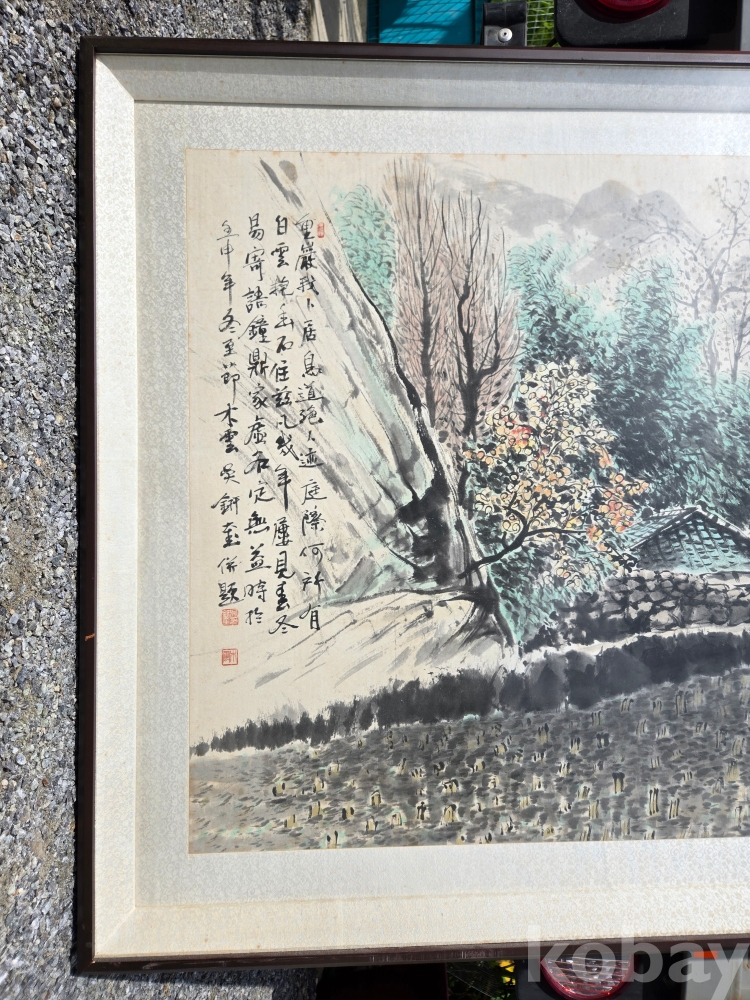 重巖我卜居鳥道絶人迹庭際何所有
白雲抱幽石住茲凡幾年屢見春冬
易寄語鐘鼎家虛名定無益時於
壬申年冬至節木雲吳奎併題
kobay